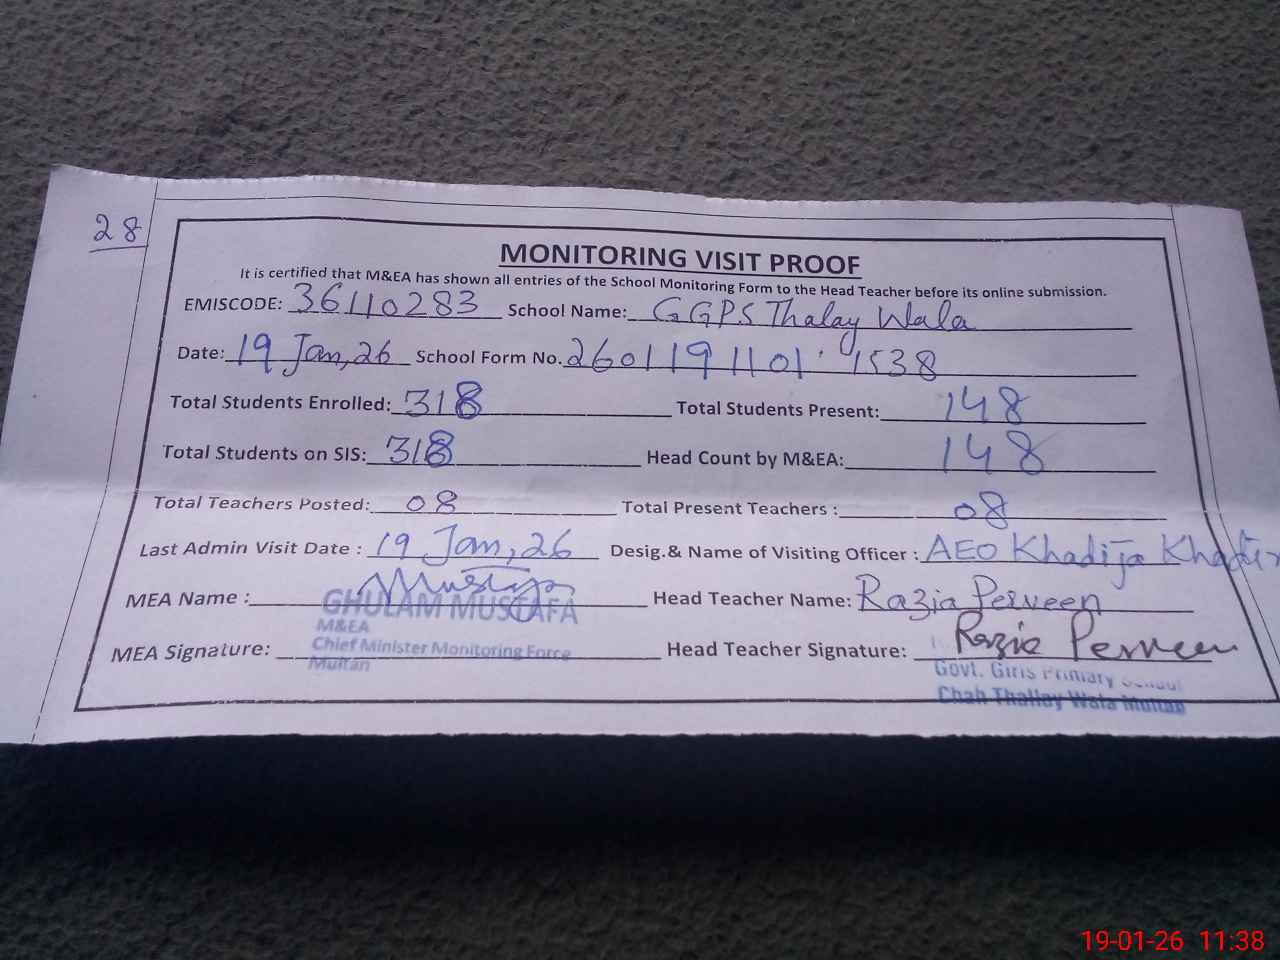 28
MONITORING VISIT PROOF
It is certified that M&EA has shown all entries of the School Monitoring Form to the Head Teacher before its online submission.
EMISCODE: 36110283 School Name: GGPS Thalay Wala
Date: 19 Jan, 26 School Form No. 2601191101 1538
Total Students Enrolled: 318 Total Students Present: 148
Total Students on SIS: 318 Head Count by M&EA: 148
Total Teachers Posted: 08 Total Present Teachers : 08
Last Admin Visit Date : 19 Jan, 26 Desig.& Name of Visiting Officer : AEO Khadija
MEA Name : Mustafa Head Teacher Name: Razia Perveen
GHULAM MUSTAFA
M&EA
Chief Minister Monitoring Force
Multan
MEA Signature: Head Teacher Signature: Razia Perveen
Govt. Girls Primary School
Chah Thallay Wala Multan
19-01-26 11:38